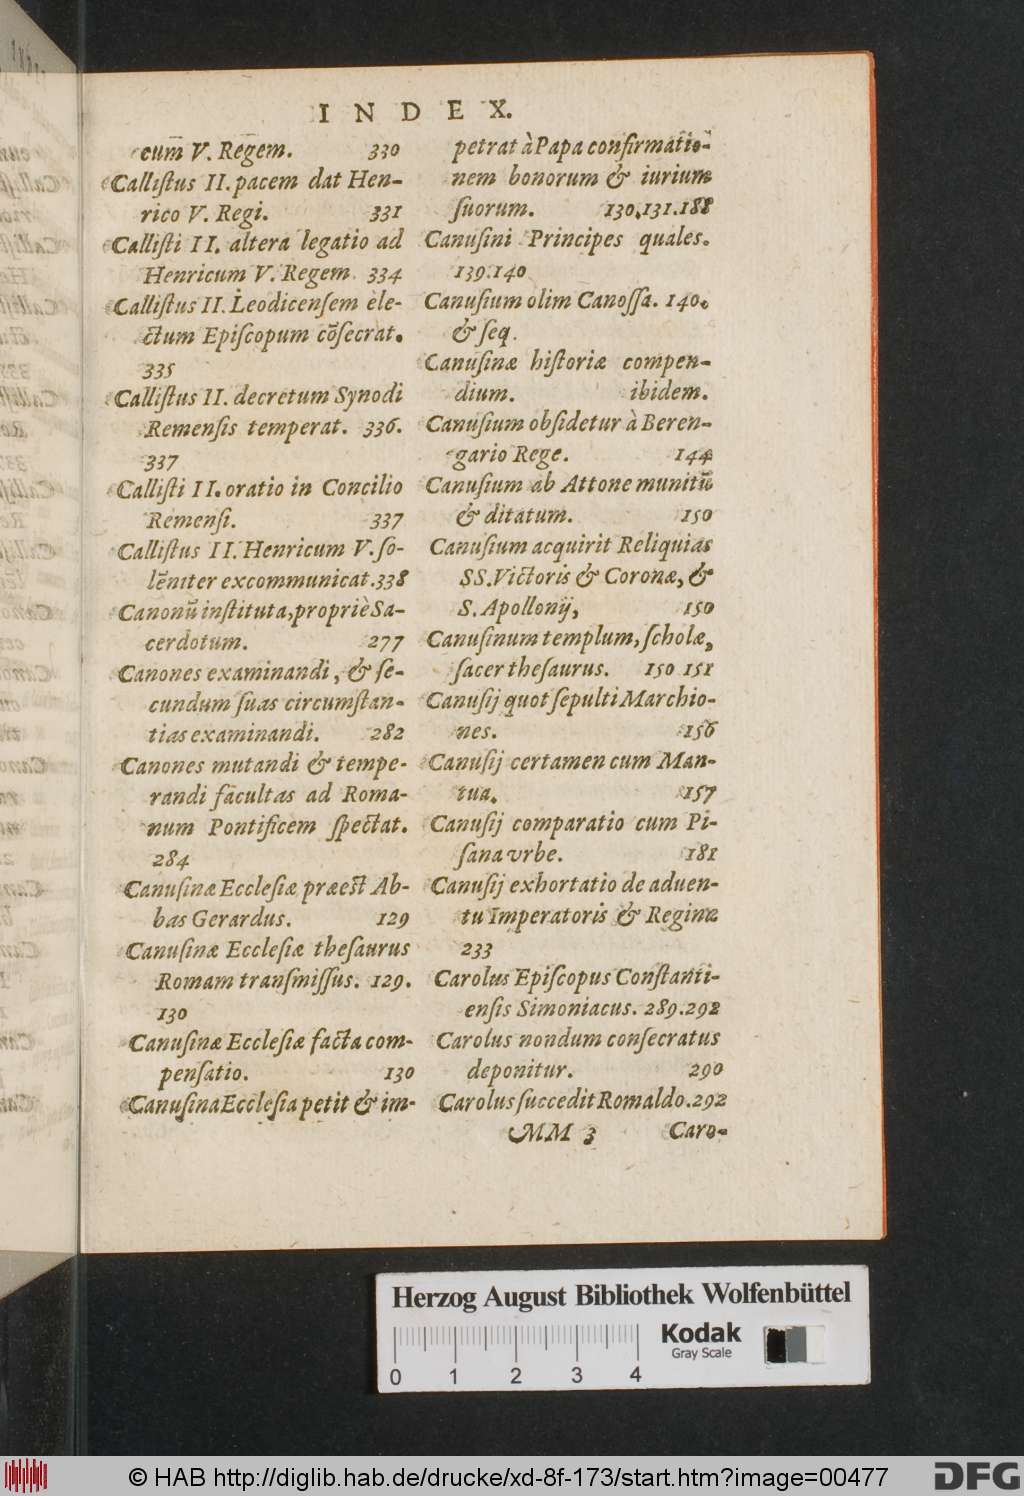 INDEX.
cum̄ V. Regem. 330
Callistus II. pacem dat Hen-
rico V. Regi. 331
Callisti II. altera legatio ad
Henricum V. Regem. 334
Callistus II. Leodicensem ele-
ctum Episcopum cōsecrat.
335
Callistus II. decretum Synodi
Remensis temperat. 336.
337
Callisti II. oratio in Concilio
Remensi. 337
Callistus II. Henricum V. so-
lēniter excommunicat. 338
Canonū instituta, propriè Sa-
cerdotum. 277
Canones examinandi, & se-
cundum suas circumstan-
tias examinandi. 282
Canones mutandi & tempe-
randi facultas ad Roma-
num Pontificem spectat.
284
Canusinæ Ecclesiæ præest Ab-
bas Gerardus. 129
Canusinæ Ecclesiæ thesaurus
Romam transmissus. 129.
130
Canusinæ Ecclesiæ facta com-
pensatio. 130
Canusina Ecclesia petit & im-
petrat à Papa confirmatio-
nem bonorum & iurium
suorum. 130.131.188
Canusini Principes quales.
139.140
Canusium olim Canossa. 140.
& seq.
Canusinæ historiæ compen-
dium. ibidem.
Canusium obsidetur à Beren-
gario Rege. 144
Canusium ab Attone munitū
& ditatum. 150
Canusium acquirit Reliquias
SS. Victoris & Coronæ, &
S. Apollonij, 150
Canusinum templum, scholæ,
sacer thesaurus. 150 151
Canusij quot sepulti Marchio-
nes. 156
Canusij certamen cum Man-
tua. 157
Canusij comparatio cum Pi-
sana vrbe. 181
Canusij exhortatio de aduen-
tu Imperatoris & Reginæ
233
Carolus Episcopus Constanti-
ensis Simoniacus. 289.292
Carolus nondum consecratus
deponitur. 290
Carolus succedit Romaldo. 292
MM 3 Caro-
Herzog August Bibliothek Wolfenbüttel
Kodak
Gray Scale
0 1 2 3 4
© HAB http://diglib.hab.de/drucke/xd-8f-173/start.htm?image=00477
DFG